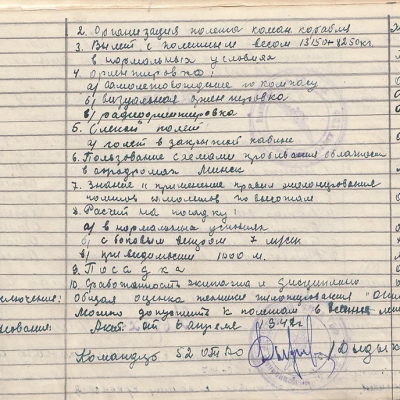 2. Организация полета коман. корабля
3. Вылет с полетным весом 13150-8250 кг.
в нормальных условиях
4. Ориентировка:
а) самолетовождение по компасу
б) визуальная ориентировка
в) радиоориентировка
5. Слепой полет
а) полет в закрытой кабине
6. Пользование схемами пробивания облачности
в аэродромах Минск
7. Знание и применение правил эшелонирования
самолетов по высотам
8. Расчет на посадку:
а) в нормальных условиях
б) с боковым ветром 7 м/сек
в) при видимости 1000 м.
9. Посадка
10. Сработанность экипажа и дисциплина
Общая оценка техники пилотирования
Можно допустить к полетам в
6 апреля 1947 г.
Командир 52 ОТАО